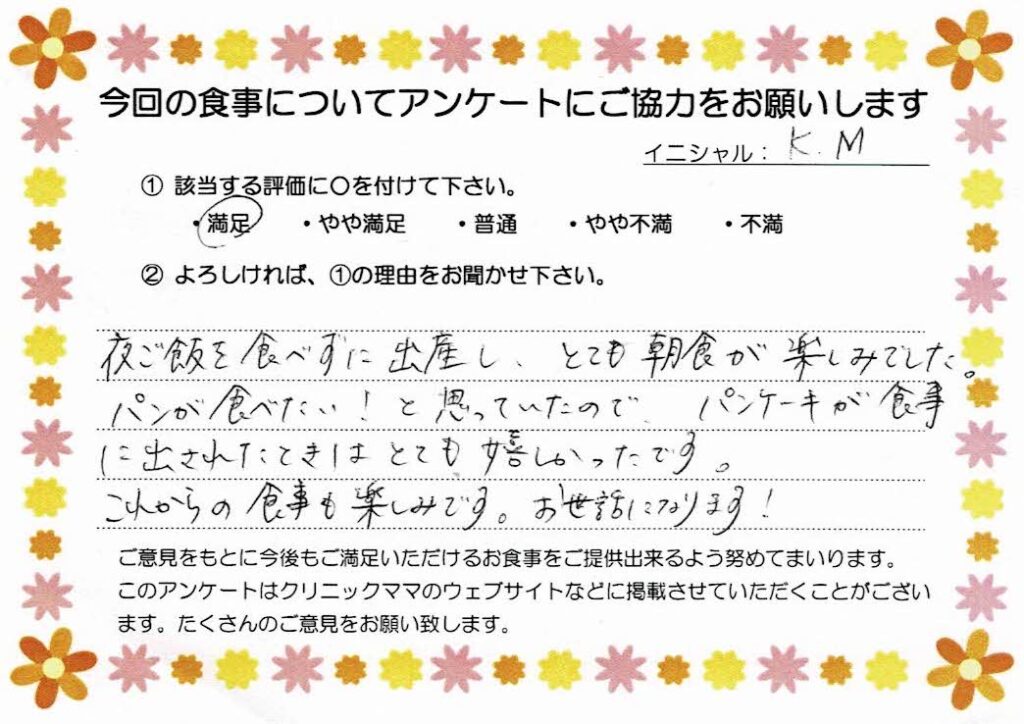 今回の食事についてアンケートにご協力をお願いします
イニシャル： K.M
① 該当する評価に〇を付けて下さい。
・満足 ・やや満足 ・普通 ・やや不満 ・不満
② よろしければ、①の理由をお聞かせ下さい。
夜ご飯を食べずに出産し、とても朝食が楽しみでした。
パンが食べたい！と思っていたので、パンケーキが食事
に出されたときはとても嬉しかったです。
これからの食事も楽しみです。お世話になります！
ご意見をもとに今後もご満足いただけるお食事をご提供出来るよう努めてまいります。
このアンケートはクリニックママのウェブサイトなどに掲載させていただくことがござい
ます。たくさんのご意見をお願い致します。